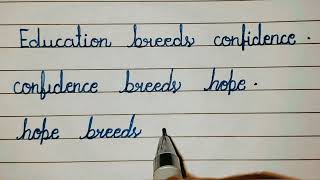 Education breeds confidence.
confidence breeds hope.
hope breeds